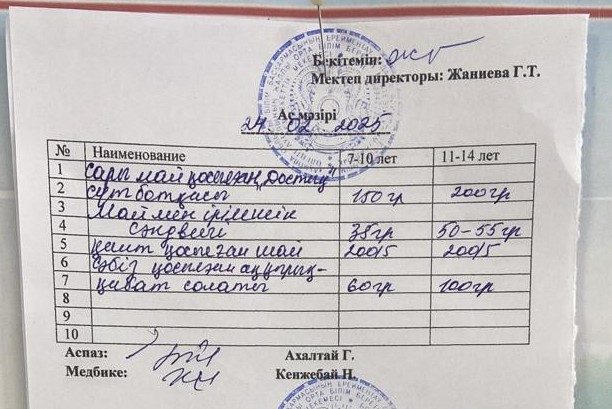 Бекітемін:
Мектеп директоры: Жаниева Г.Т.
Ас мәзірі
24 02 2025
№ Наименование 7-10 лет 11-14 лет
1 сары май қосылған „Достық"
2 сүт ботқасы 150 гр 200 гр
3 Май мен ірімшік
4 сэндвегі 38 гр 50-55 гр
5 қант қосылған шай 200/5 200/5
6 сәбіз қосылған ақ
7 салаты 60 гр 100 гр
8
9
10
Аспаз: Ахалтай Г.
Медбике: Кенжебай Н.